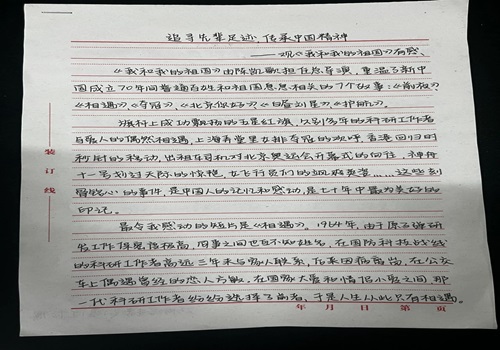 追寻先辈足迹，传承中国精神
——观《我和我的祖国》有感
《我和我的祖国》由陈凯歌担任总导演，重温了新中
国成立70年间普通百姓和祖国息息相关的7个故事：《前夜》
《相遇》、《夺冠》、《北京你好》、《白昼流星》、《护航》。
旗杆上成功飘扬的五星红旗，久别多年的科研工作者
与恋人的偶然相遇，上海弄堂里女排夺冠的欢呼，香港回归时
利用的移动，出租车司机对北京奥运会开幕式的向往，神舟
十一号划过天际的惊艳，女飞行员们的飒爽英姿……这些刻
骨铭心的事件，是中国人的记忆和感动，是七十年中最为美好的
印记。
最令我感动的短片是《相遇》。1964年，由于原子弹研
发工作保密级极高，同事之间也互不知姓名，在国防科技战线
的科研工作者高远三年未与家人联系，后来因病离岗，在公交
车上偶遇曾经的恋人方敏，在国家大爱和情侣小爱之间，那
一代科研工作者纷纷选择了前者，于是人生从此只有相遇。
装订线
年 月 日 第 页